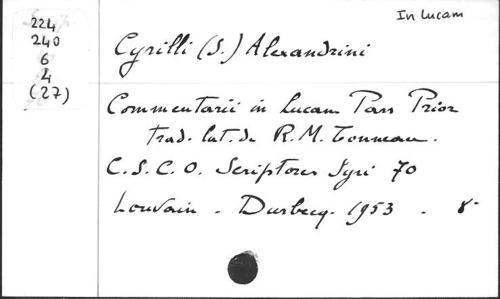 In Lucam
224
240
6
4
(27)
Cyrilli (S.) Alexandrini
Commentarii in Lucam Pars Prior
trad. lat. de R. M. Tonneau.
C. S. C. O. Scriptores Syri 70
Louvain - Durbecq. 1953 - 8-